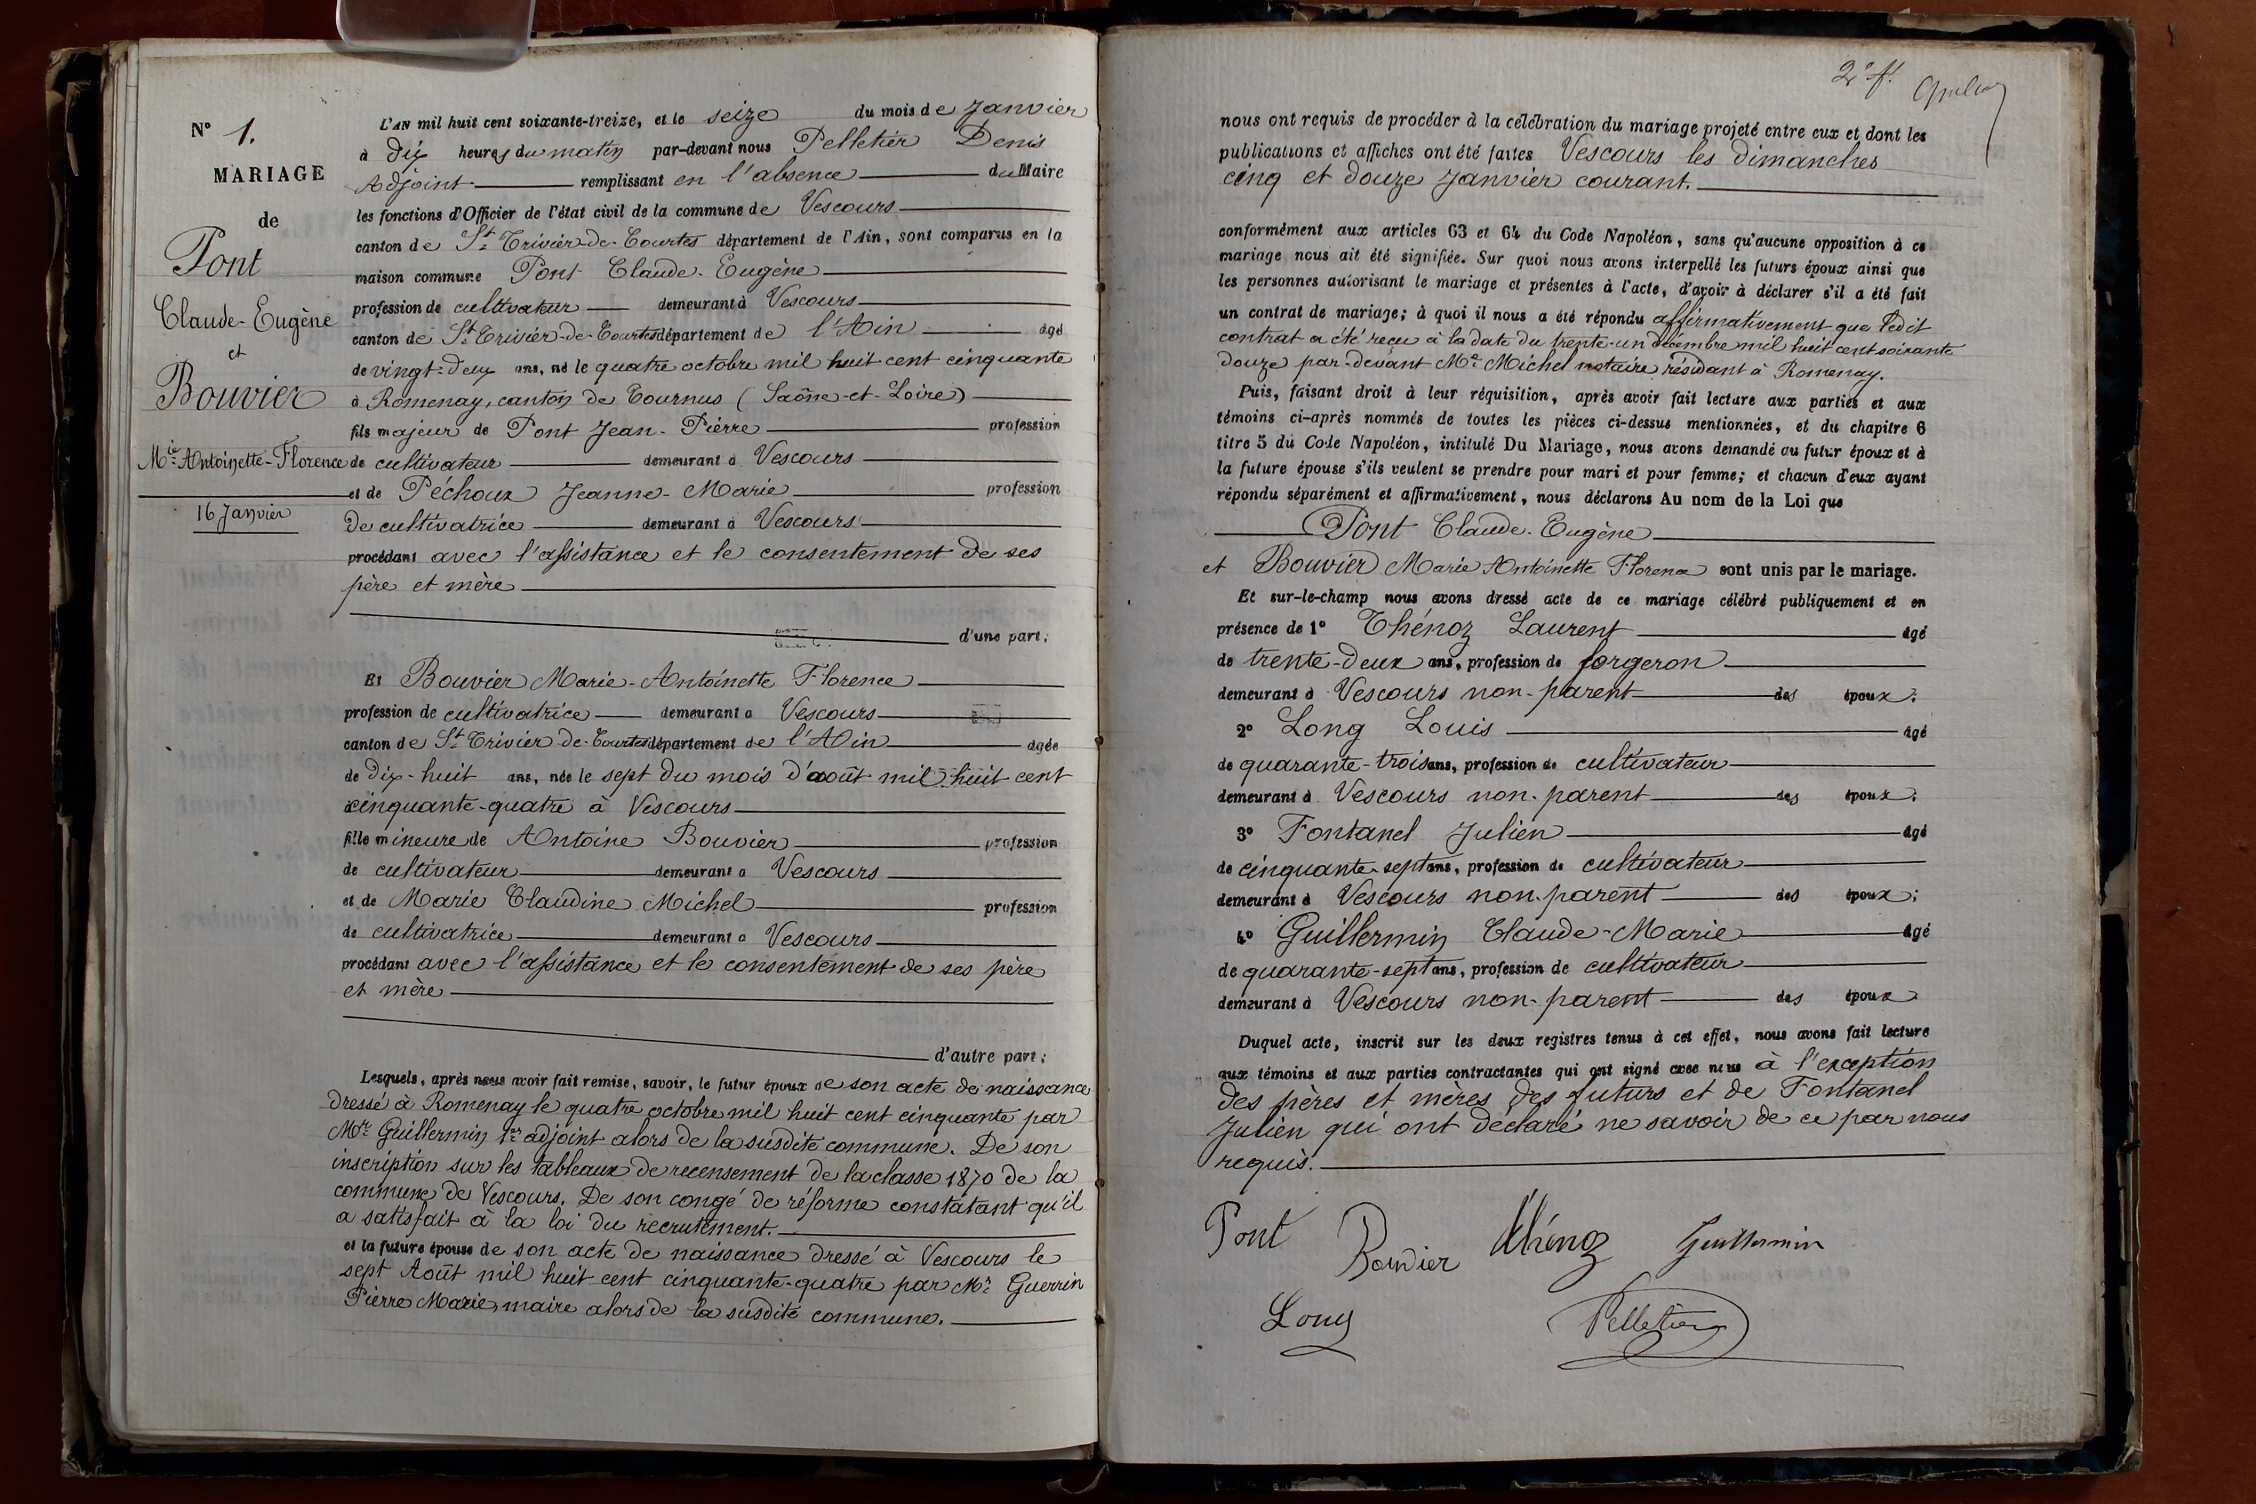 N° 1.
MARIAGE
de
Pont
Claude-Eugène
et
Bouvier
Mie Antoinette-Florence
16 Janvier
L'AN mil huit cent soixante-treize, et le seize du mois de Janvier
à dix heures du matin par-devant nous Pelletier Denis
Adjoint remplissant en l'absence du Maire
les fonctions d'Officier de l'état civil de la commune de Vescours
canton de St Trivier-de-Courtes département de l'Ain, sont comparus en la
maison commune Pont Claude-Eugène
profession de cultivateur demeurant à Vescours
canton de St Trivier-de-Courtes département de l'Ain âgé
de vingt-deux ans, né le quatre octobre mil huit cent cinquante
à Romenay, canton de Tournus (Saône-et-Loire)
fils majeur de Pont Jean-Pierre profession
de cultivateur demeurant à Vescours
et de Péchoux Jeanne-Marie profession
de cultivatrice demeurant à Vescours
procédant avec l'assistance et le consentement de ses
père et mère
d'une part;
Et Bouvier Marie-Antoinette Florence
profession de cultivatrice demeurant à Vescours
canton de St Trivier-de-Courtes département de l'Ain agée
de dix-huit ans, née le sept du mois d'août mil huit cent
cinquante-quatre à Vescours
fille mineure de Antoine Bouvier profession
de cultivateur demeurant à Vescours
et de Marie Claudine Michel profession
de cultivatrice demeurant à Vescours
procédant avec l'assistance et le consentement de ses père
et mère
d'autre part;
Lesquels, après nous avoir fait remise, savoir, le futur époux de son acte de naissance
dressé à Romenay le quatre octobre mil huit cent cinquante par
Mr Guillermin 1er adjoint alors de la susdite commune. De son
inscription sur les tableaux de recensement de la classe 1870 de la
commune de Vescours. De son congé de réforme constatant qu'il
a satisfait à la loi du recrutement.
et la future épouse de son acte de naissance dressé à Vescours le
sept Août mil huit cent cinquante-quatre par Mr Guerrin
Pierre Marie, maire alors de la susdite commune.
2e f.
nous ont requis de procéder à la célébration du mariage projeté entre eux et dont les
publications et affiches ont été faites Vescours les dimanches
cinq et douze Janvier courant.
conformément aux articles 63 et 64 du Code Napoléon, sans qu'aucune opposition à ce
mariage nous ait été signifiée. Sur quoi nous avons interpellé les futurs époux ainsi que
les personnes autorisant le mariage et présentes à l'acte, d'avoir à déclarer s'il a été fait
un contrat de mariage; à quoi il nous a été répondu affirmativement que ledit
contrat a été reçu à la date du trente-un décembre mil huit cent soixante
douze par-devant Me Michel notaire résidant à Romenay.
Puis, faisant droit à leur réquisition, après avoir fait lecture aux parties et aux
témoins ci-après nommés de toutes les pièces ci-dessus mentionnées, et du chapitre 6
titre 5 du Code Napoléon, intitulé Du Mariage, nous avons demandé au futur époux et à
la future épouse s'ils veulent se prendre pour mari et pour femme; et chacun d'eux ayant
répondu séparément et affirmativement, nous déclarons Au nom de la Loi que
Pont Claude-Eugène
et Bouvier Marie Antoinette Florence sont unis par le mariage.
Et sur-le-champ nous avons dressé acte de ce mariage célébré publiquement et en
présence de 1° Thénoz Laurent âgé
de trente-deux ans, profession de forgeron
demeurant à Vescours non-parent des époux;
2° Long Louis âgé
de quarante-trois ans, profession de cultivateur
demeurant à Vescours non-parent des époux;
3° Fontanel Julien âgé
de cinquante-sept ans, profession de cultivateur
demeurant à Vescours non-parent des époux;
4° Guillermin Claude-Marie âgé
de quarante-sept ans, profession de cultivateur
demeurant à Vescours non-parent des époux
Duquel acte, inscrit sur les deux registres tenus à cet effet, nous avons fait lecture
aux témoins et aux parties contractantes qui ont signé avec nous à l'exception
des pères et mères des futurs et de Fontanel
Julien qui ont déclaré ne savoir de ce par nous
requis.
Pont Bouvier Thénoz Guillermin
Long Pelletier